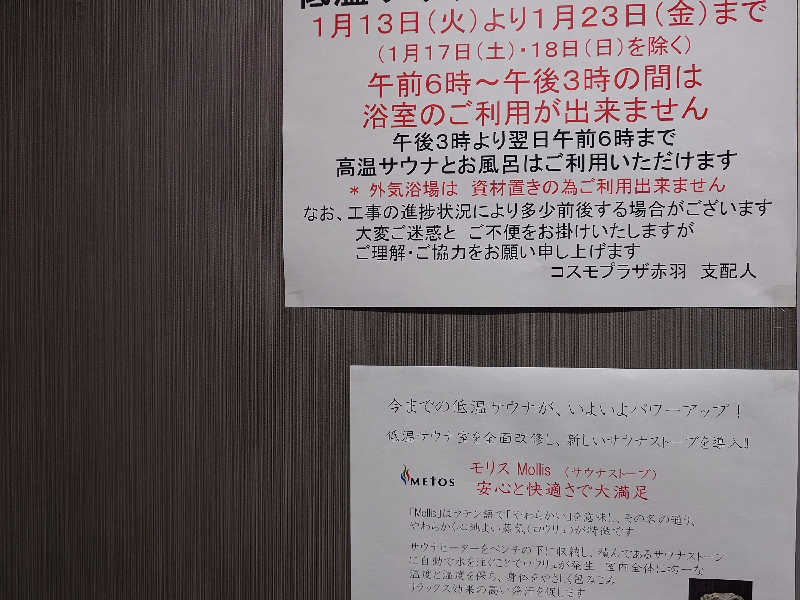 1月13日(火)より1月23日(金)まで
(1月17日(土)・18日(日)を除く)
午前6時～午後3時の間は
浴室のご利用が出来ません
午後3時より翌日午前6時まで
高温サウナとお風呂はご利用いただけます
* 外気浴場は 資材置きの為ご利用出来ません
なお、工事の進捗状況により多少前後する場合がございます
大変ご迷惑と ご不便をお掛けいたしますが
ご理解・ご協力をお願い申し上げます
コスモプラザ赤羽 支配人
今までの低温サウナが、いよいよパワーアップ!
低温サウナ室を全面改修し、新しいサウナストーブを導入!!
METOS
モリス Mollis (サウナストーブ)
安心と快適さで大満足
「Mollis」はラテン語で「やわらかい」を意味し、その名の通り、
やわらかく心地よい蒸気(ロウリュ)が特徴です
サウナヒーターをベンチの下に収納し、積んであるサウナストーン
に自動で水を注ぐことでロウリュが発生 室内全体に均一な
温度と湿度を保ち、身体をやさしく包みこみ
リラックス効果の高い発汗を促します